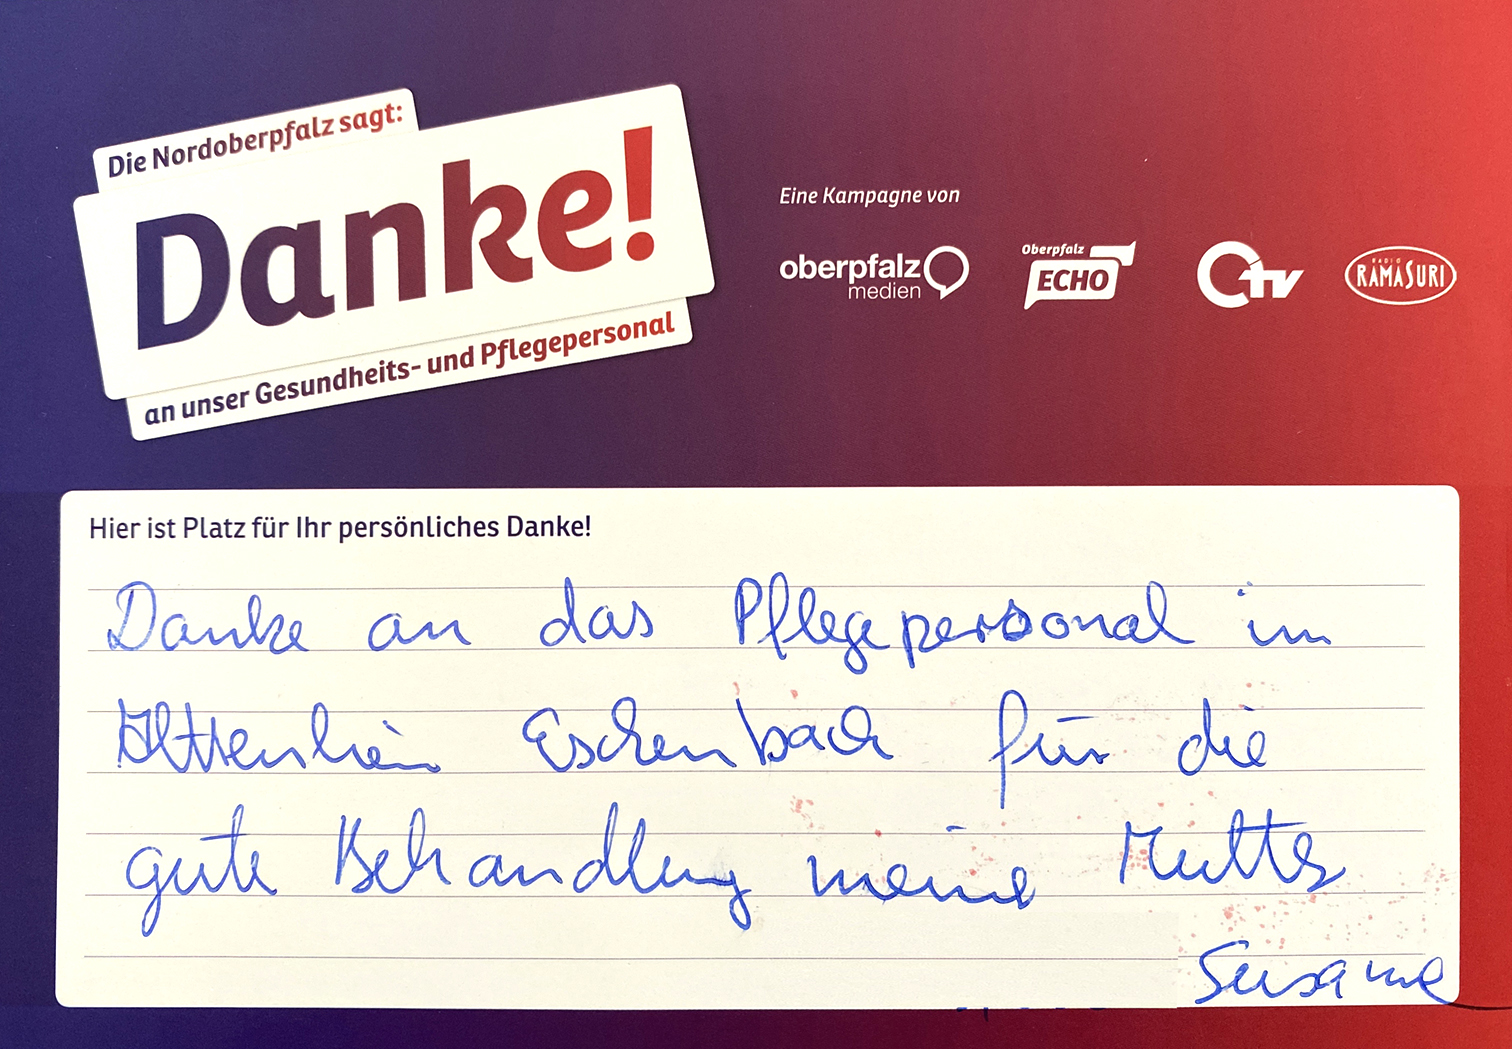 Die Nordoberpfalz sagt:
Danke!
an unser Gesundheits- und Pflegepersonal
Eine Kampagne von
oberpfalz
medien
Oberpfalz
ECHO
OTV
RADIO
RAMASURI
Hier ist Platz für Ihr persönliches Danke!
Danke an das Pflegepersonal im
Eschenbach für die
gute Behandlung meine Mutter
Susanne